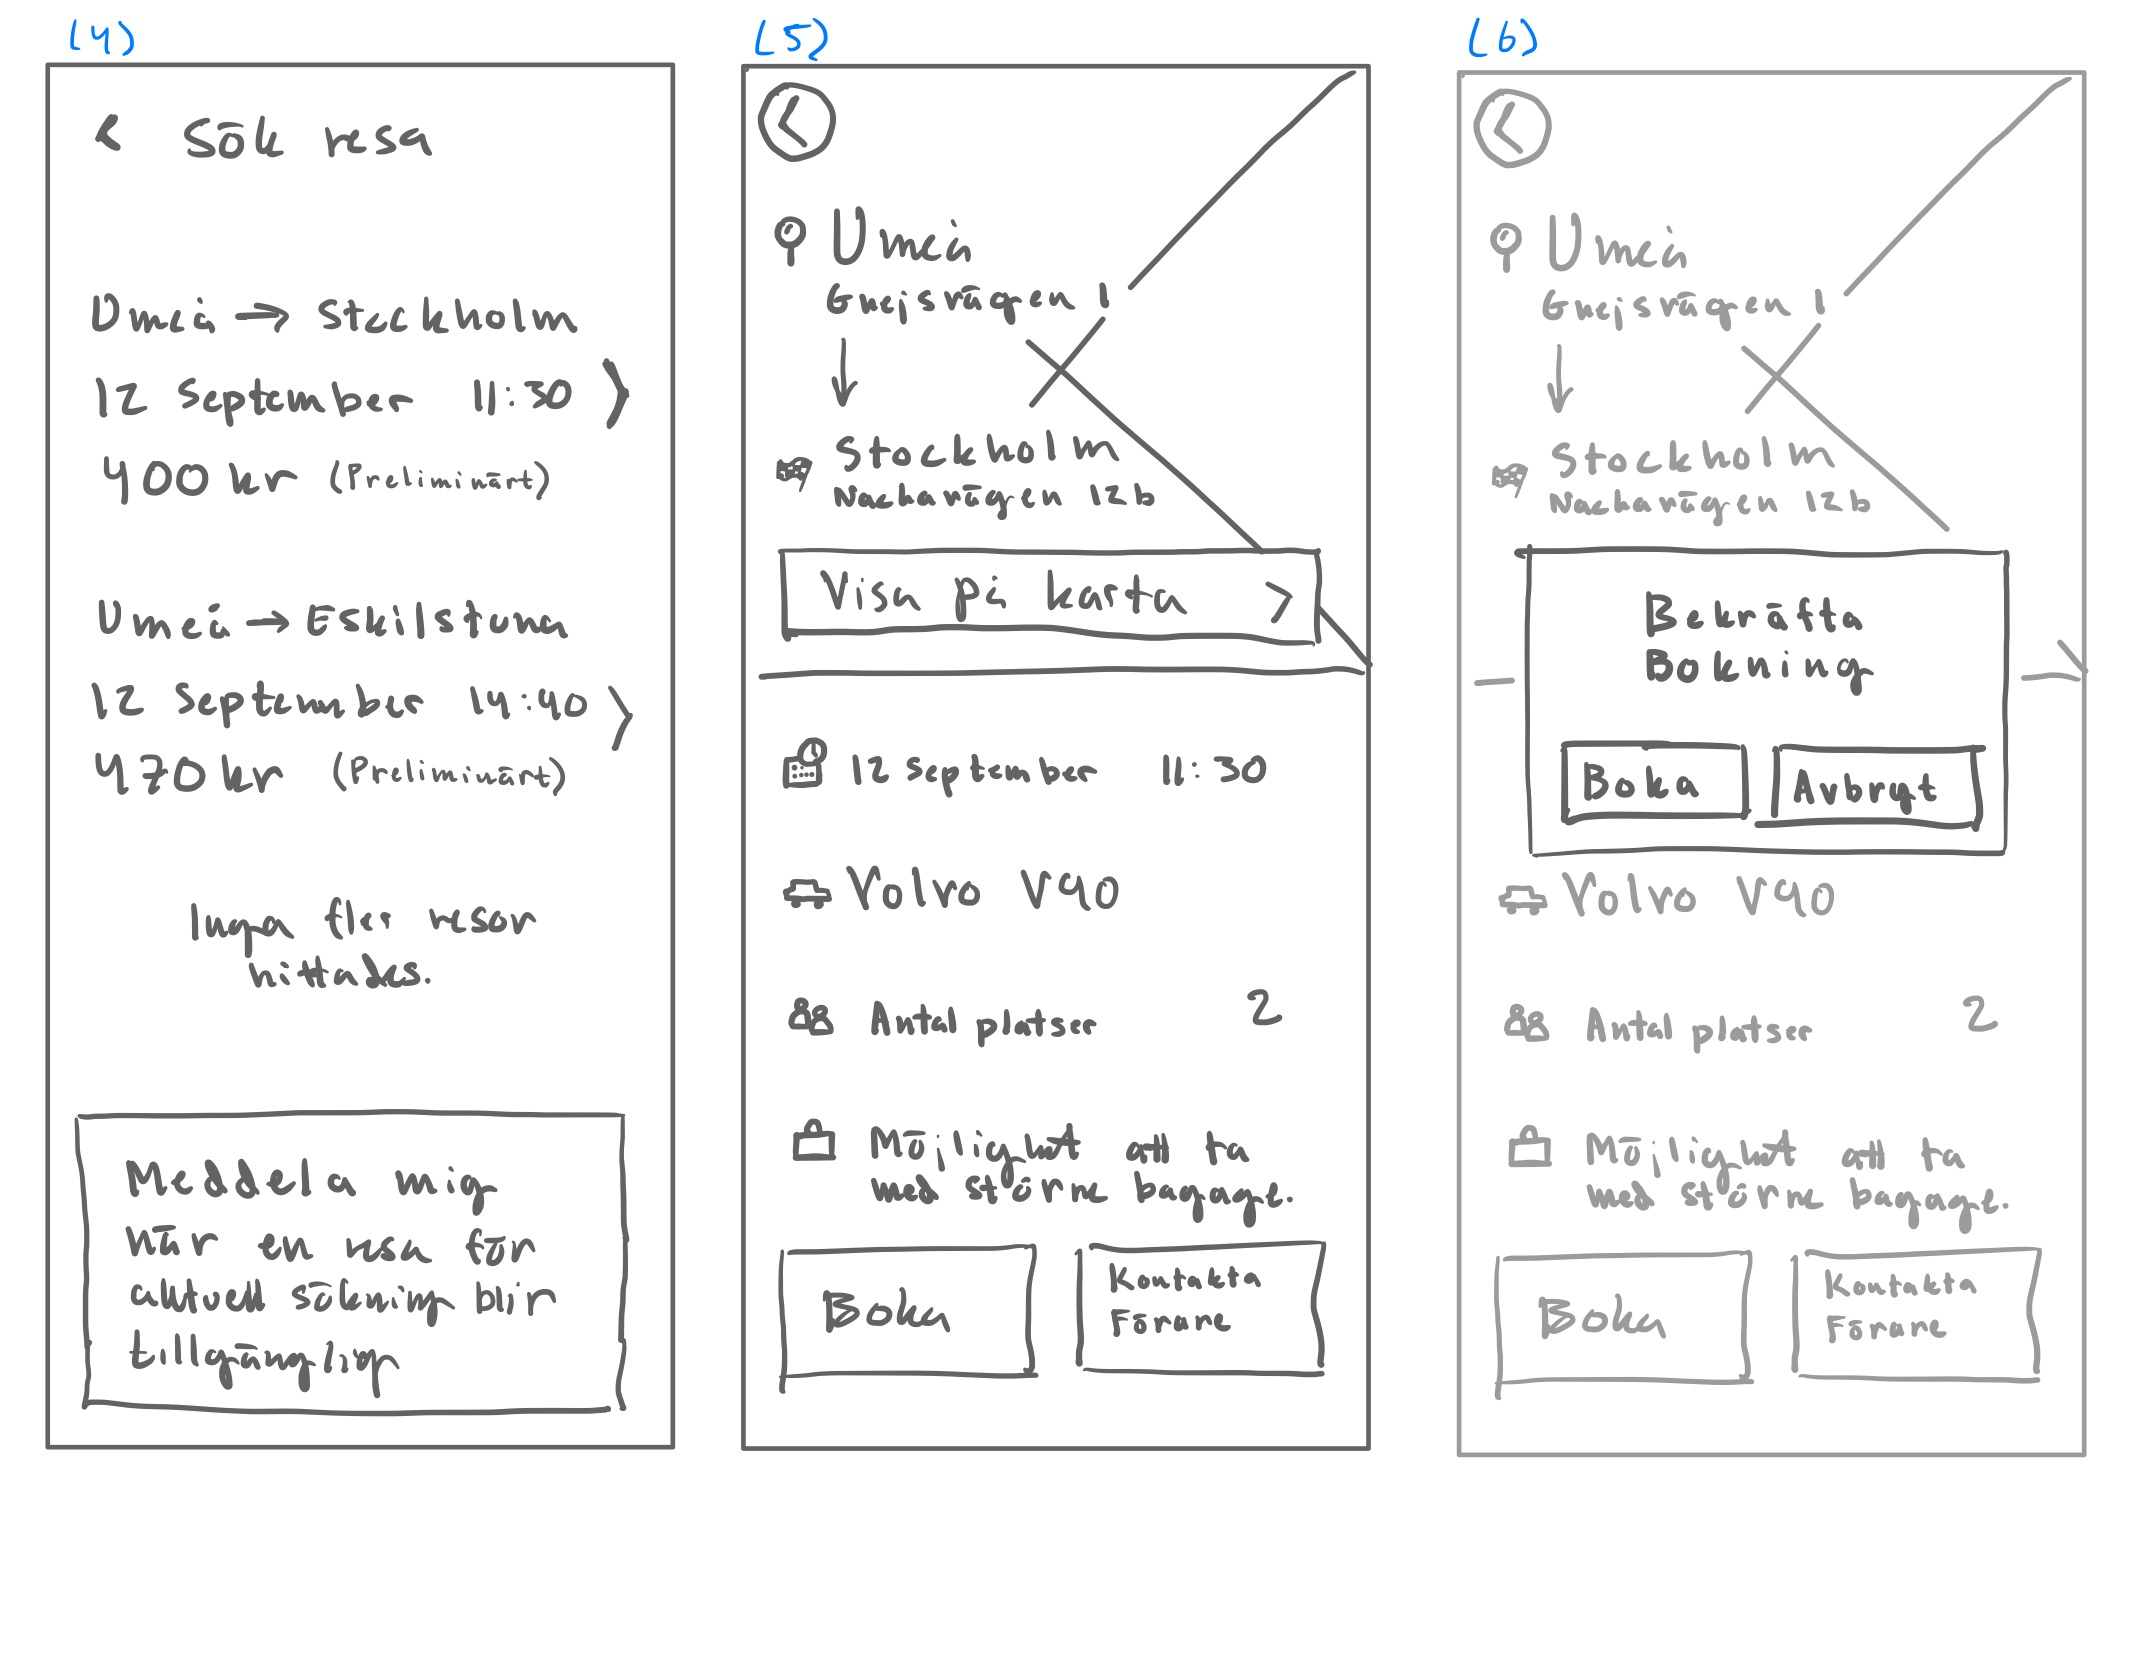 (4)
Sök resa
Umeå → Stockholm
12 September 11:30
400 kr (Preliminärt)
Umeå → Eskilstuna
12 September 14:40
470 kr (Preliminärt)
Inga fler resor
hittades.
Meddela mig
när en resa för
aktuell sökning blir
tillgänglig
(5)
Umeå
Gnejsvägen 1
Stockholm
Nackavägen 12b
Visa på karta >
12 September 11:30
Volvo V90
Antal platser 2
Möjlighet att ta
med större bagage.
Boka
Kontakta
Förare
(6)
Umeå
Gnejsvägen 1
Stockholm
Nackavägen 12b
Bekräfta
Bokning
Boka
Avbryt
Volvo V90
Antal platser 2
Möjlighet att ta
med större bagage.
Boka
Kontakta
Förare